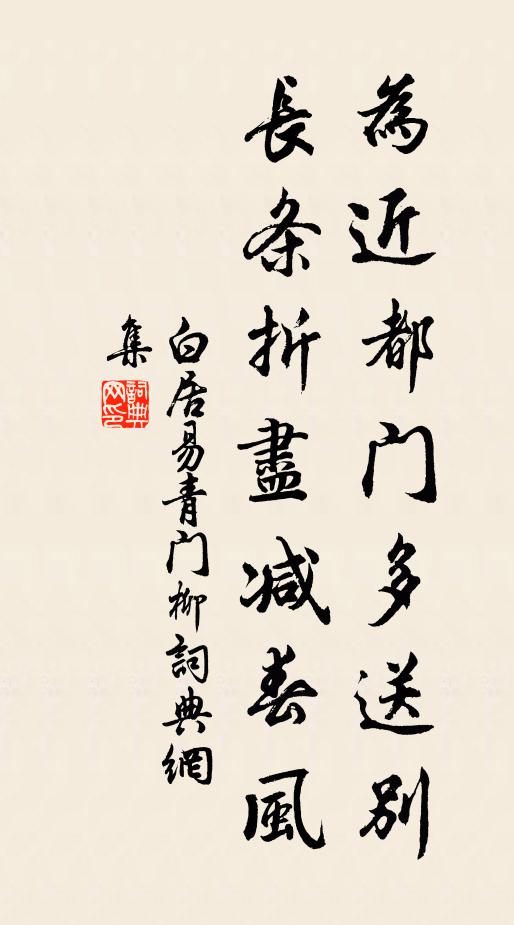 為近都门多送别
長条折盡减春風
白居易青门柳詞典網
集
詞典网印